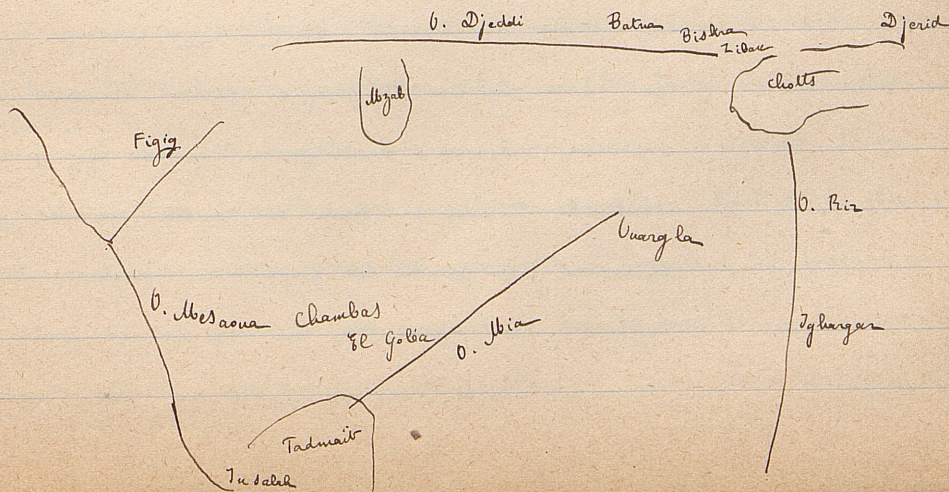 O. Djeddi
Batna
Biskra
Ziban
Djerid
Mzab
Chotts
Figig
O. Rir
Ouargla
O. Messaoura
Chambas
El Goléa
O. Mia
Igharghar
Tadmaït
In Salah